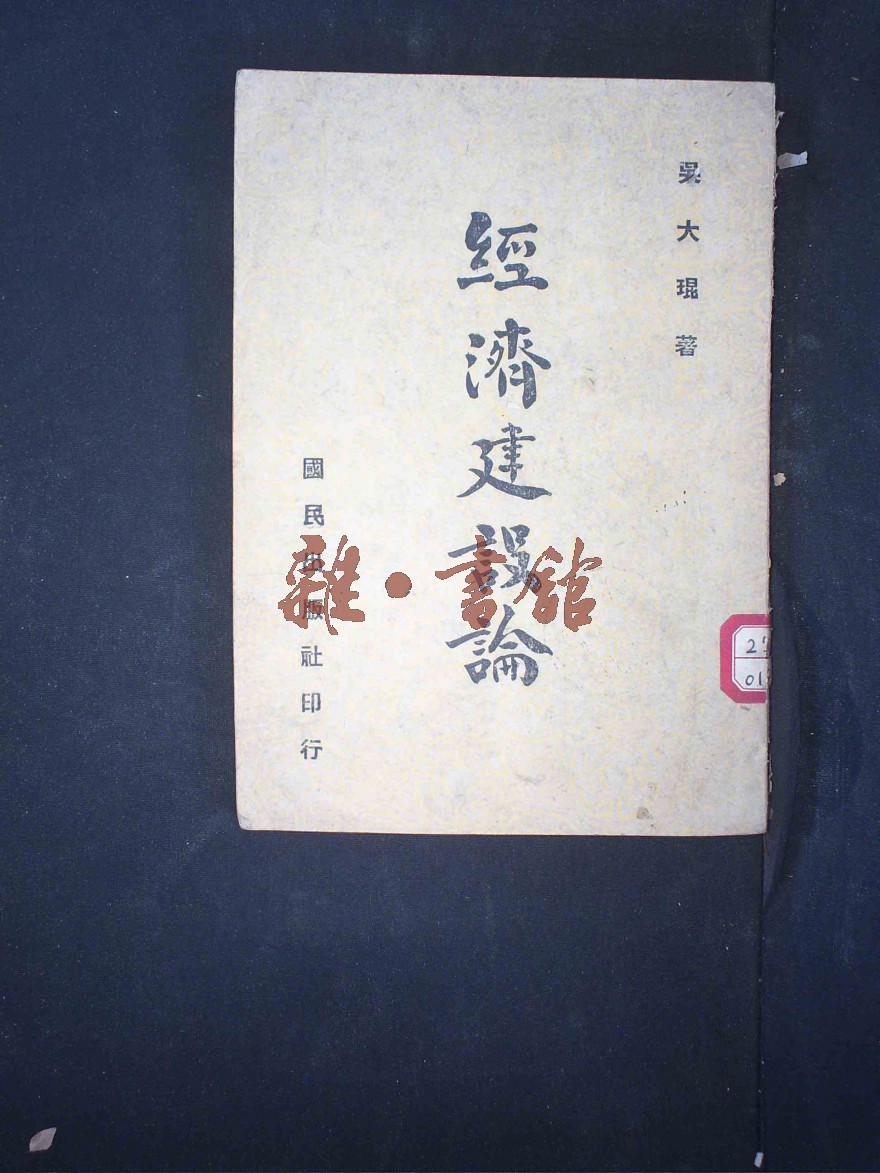 吳大琨著
經濟建設論
國民出版社印行
雜·書館
2
01